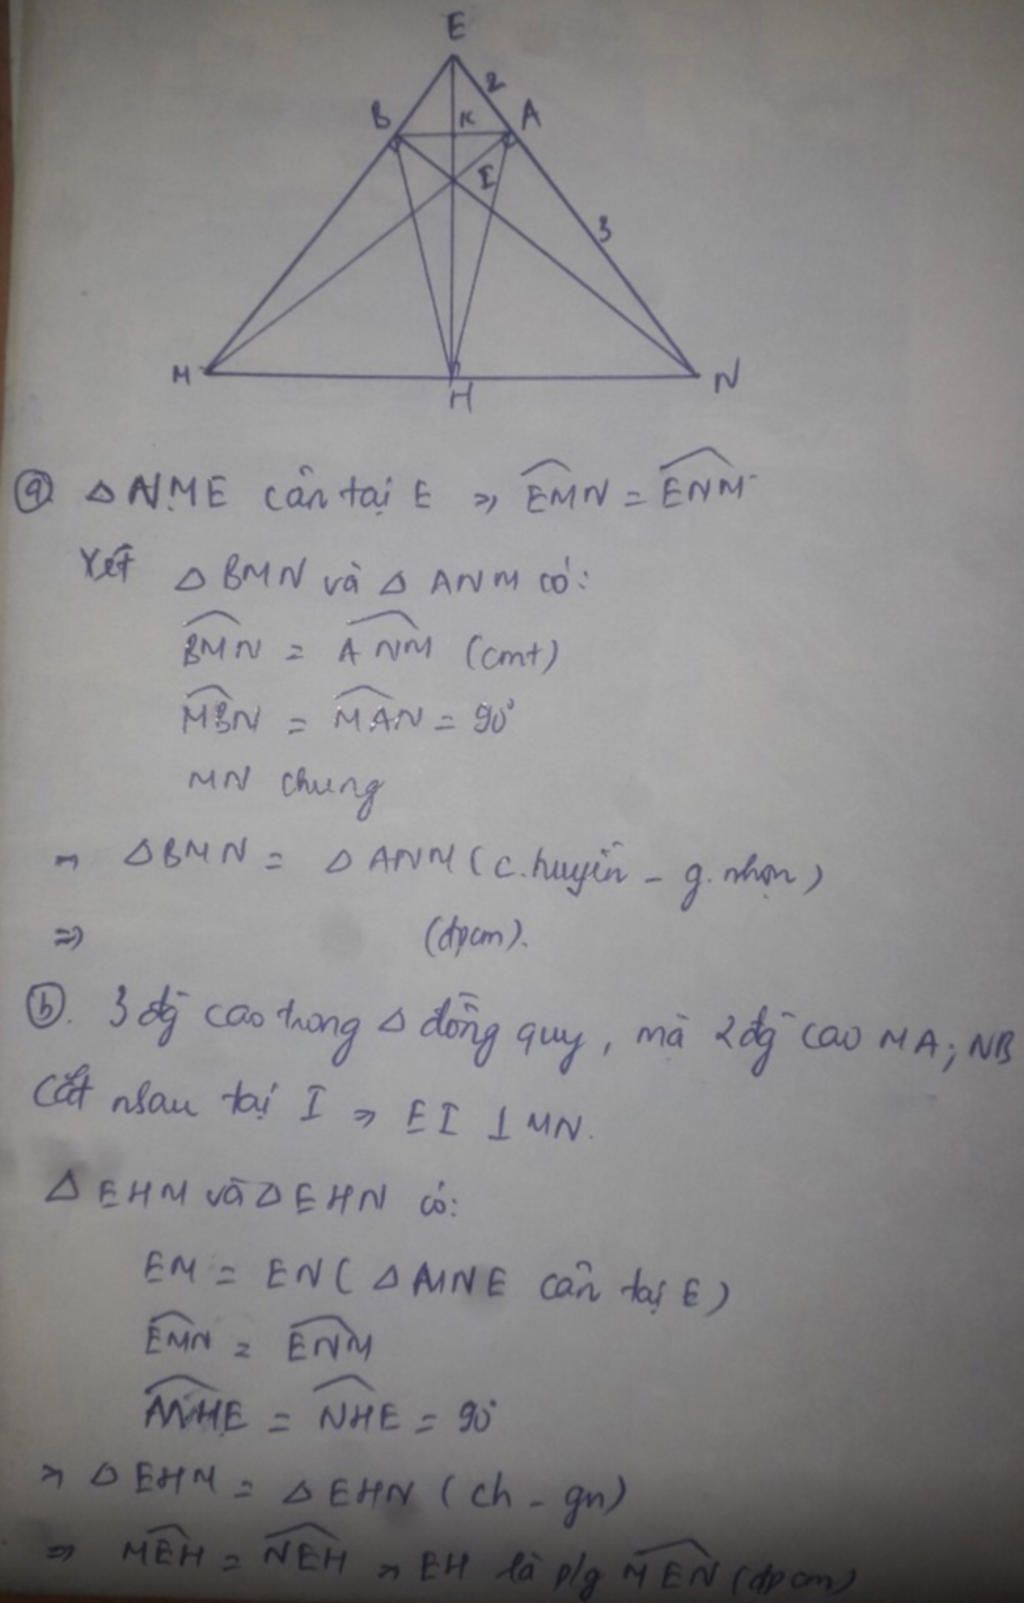 E
2
B K A
I
3
M H N
ⓐ △NME cân tại E => EMN = ENM
Xét △BMN và △ANM có:
BMN = ANM (cmt)
MBN = MAN = 90°
MN chung
=> △BMN = △ANM (c.huyền - g.nhọn)
=> (đpcm).
ⓑ. 3 đg cao trong △ đồng quy, mà 2 đg cao MA; NB
Cắt nhau tại I => EI ⊥ MN.
△EHM và △EHN có:
EM = EN (△MNE cân tại E)
EMN = ENM
MHE = NHE = 90°
=> △EHM = △EHN (ch - gn)
=> MEH = NEH => EH là p/g MEN (đpcm)